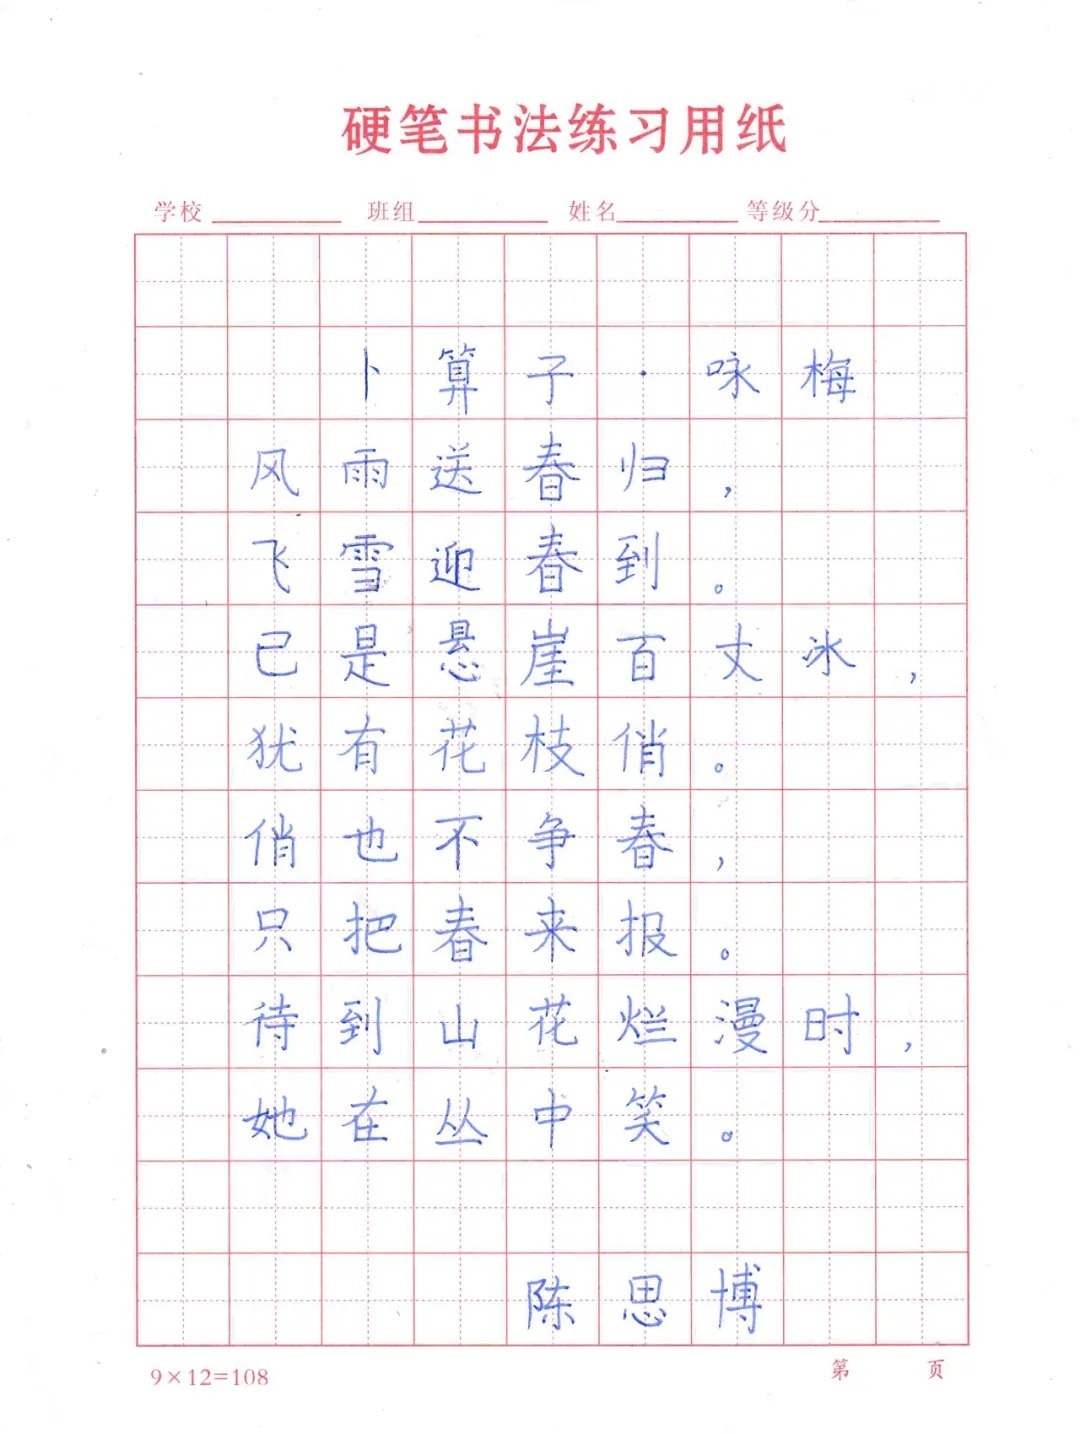 硬笔书法练习用纸
学校 班组 姓名 等级分
卜算子·咏梅
风雨送春归，
飞雪迎春到。
已是悬崖百丈冰，
犹有花枝俏。
俏也不争春，
只把春来报。
待到山花烂漫时，
她在丛中笑。
陈思博
9×12=108 第 页